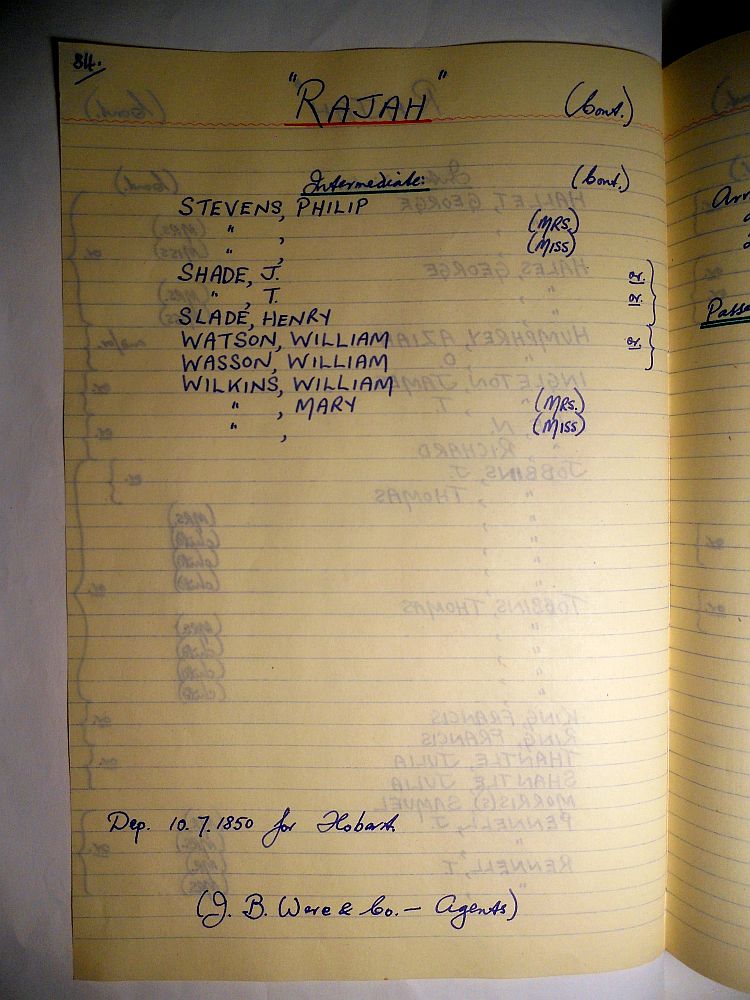 84.
"RAJAH" (Cont.)
Intermediate: (Cont.)
STEVENS, PHILIP
" , (MRS.)
" , (MISS)
SHADE, J. or.
" , T. or.
SLADE, HENRY
WATSON, WILLIAM or.
WASSON, WILLIAM
WILKINS, WILLIAM
" , MARY (MRS.)
" , (MISS)
Dep. 10.7.1850 for Hobart
(J. B. Were & Co. — Agents)
Arr
Passe